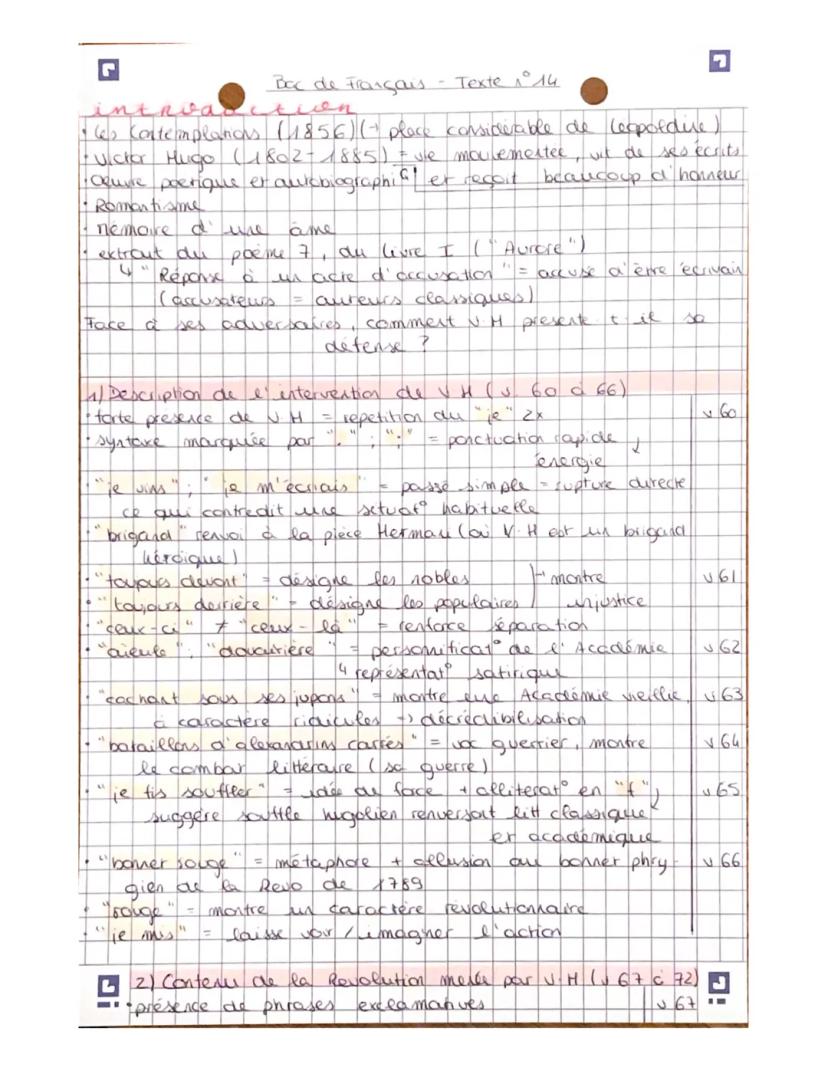 Bac de Français - Texte n°14
introduction
• Les Contemplations (1856) (→ place considérable de Leopoldine)
• Victor Hugo (1802-1885) = vie mouvementée, vit de ses écrits
• Oeuvre poétique et autobiographiq et reçoit beaucoup d'honneur
• Romantisme
• mémoire d'une âme
• extrait du poème 7, du livre I ("Aurore")
↳ "Réponse à un acte d'accusation" = accusé d'être écrivain
(accusateurs = auteurs classiques)
Face à ses adversaires, comment V.H présente t-il sa
défense ?
1) Description de l'intervention de V H (v. 60 à 66)
• forte présence de V H = repetition du "je" 2x v 60
• syntaxe marquée par "." ; ";" = ponctuation rapide ↓
énergie
• "je vins" ; "je m'écriais" = passé simple = rupture directe
ce qui contredit une situat° habituelle
• "brigand" renvoi à la pièce Hernani (où V.H est un brigand
héroïque)
• "toujours devant" = désigne les nobles → montre v 61
• "toujours derrière" = désigne les populaires injustice
• "ceux-ci" ≠ "ceux-là" = renforce séparation
• "aïeule" ; "douairière" = personnificat° de l'Académie v 62
↳ représentat° satirique
• "cachant sous ses jupons" = montre une Académie vieillie, v 63
à caractère ridicules → décrédibilisation
• "bataillons d'alexandrins carrés" = voc guerrier, montre v 64
le combat littéraire (sa guerre)
• "je fis souffler" = idée de force + alliterat° en "f" ↓ v 65
suggère souffle hugolien renversant litt classique
et académique
• "bonnet rouge" = métaphore + allusion au bonnet phry- v 66
gien de la Revo de 1789
• "rouge" = montre un caractère révolutionnaire
• "je mis" = laisse voir / imaginer l'action
2) Contenu de la Revolution menée par V.H (v 67 à 72)
• présence de phrases exclamatives v 67